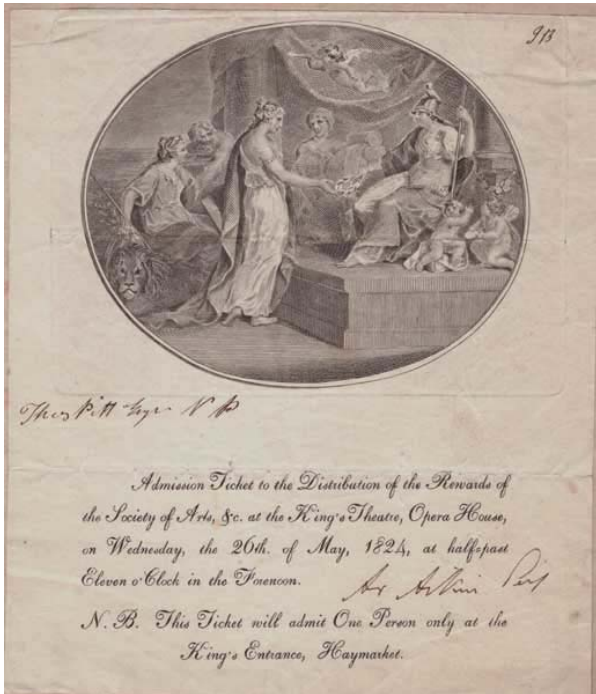 913
Thos Pitt Esqr V P
Admission Ticket to the Distribution of the Rewards of
the Society of Arts, &c. at the King's Theatre, Opera House,
on Wednesday, the 26th. of May, 1824, at half=past
Eleven o'Clock in the Forenoon.
Ar Aikin
N. B. This Ticket will admit One Person only at the
King's Entrance, Haymarket.